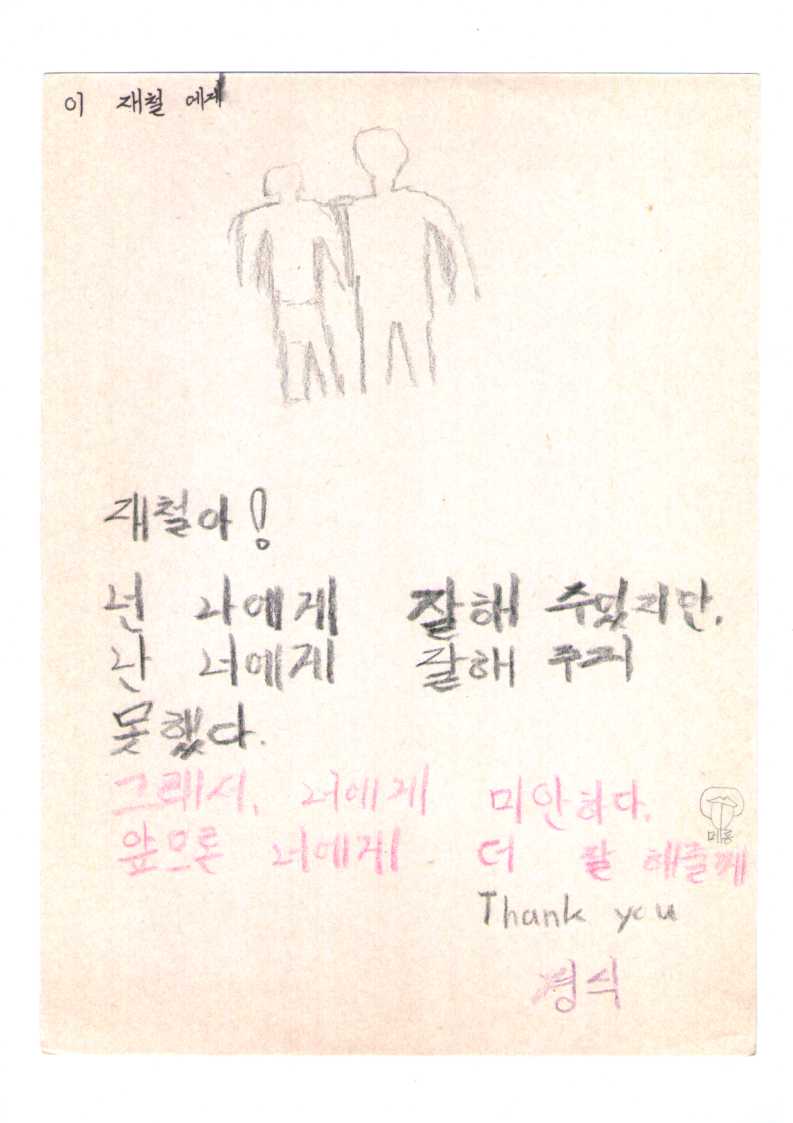 이 재철 에게
재철아!
넌 나에게 잘해 주었지만,
난 너에게 잘해 주지
못했다.
그래서, 너에게 미안하다.
메롱
앞으론 너에게 더 잘 해줄께
Thank you
경식